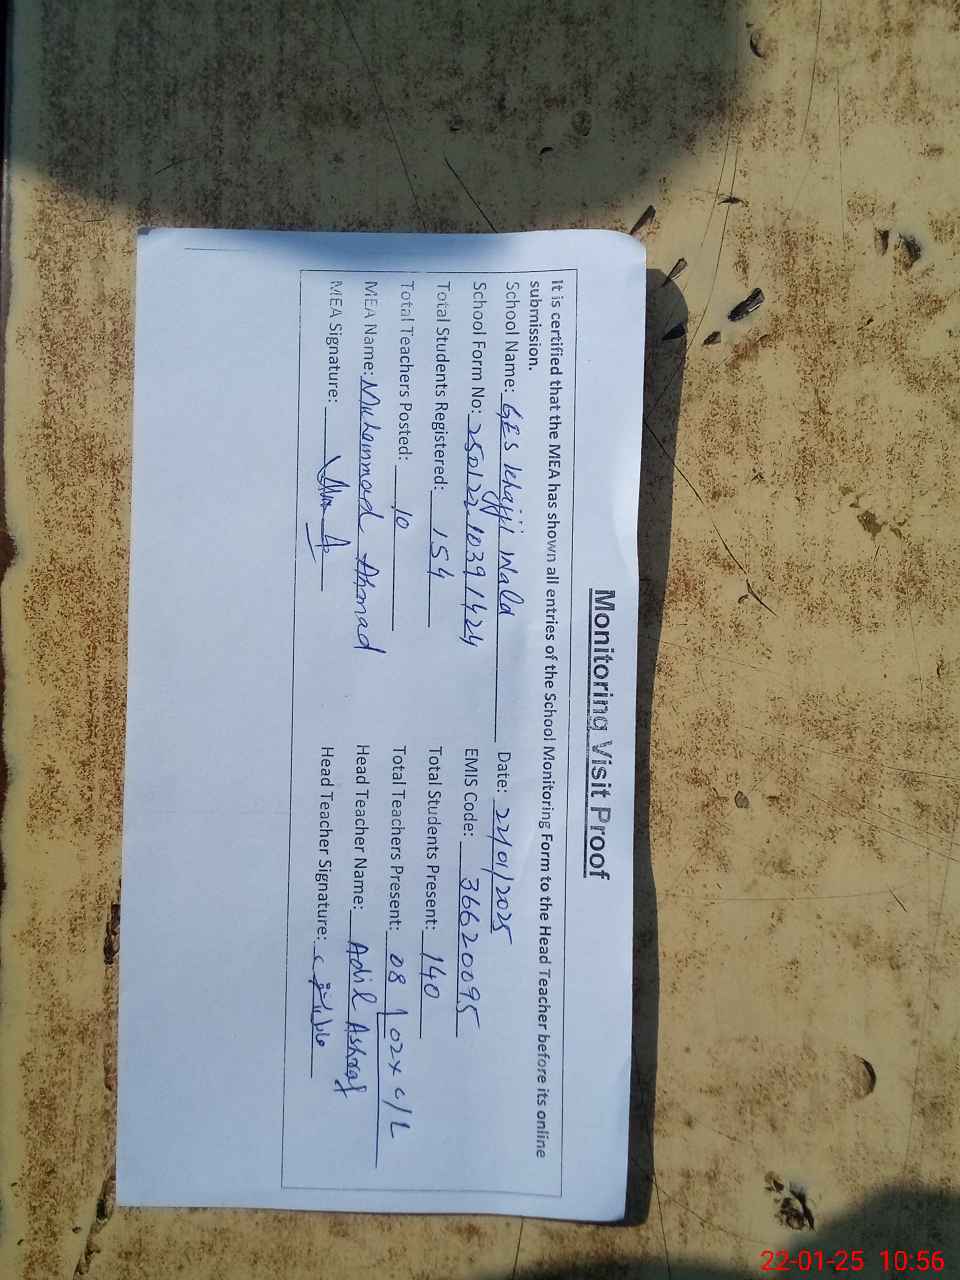 Monitoring Visit Proof
It is certified that the MEA has shown all entries of the School Monitoring Form to the Head Teacher before its online
submission.
School Name: GES Khajji Wala Date: 22/01/2025
School Form No: 250122-10391424 EMIS Code: 36620095
Total Students Registered: 154 Total Students Present: 140
Total Teachers Posted: 10 Total Teachers Present: 08, 02x C/L
MEA Name: Muhammad Ahmad Head Teacher Name: Adil Ashraf
MEA Signature: Head Teacher Signature:
22-01-25 10:56